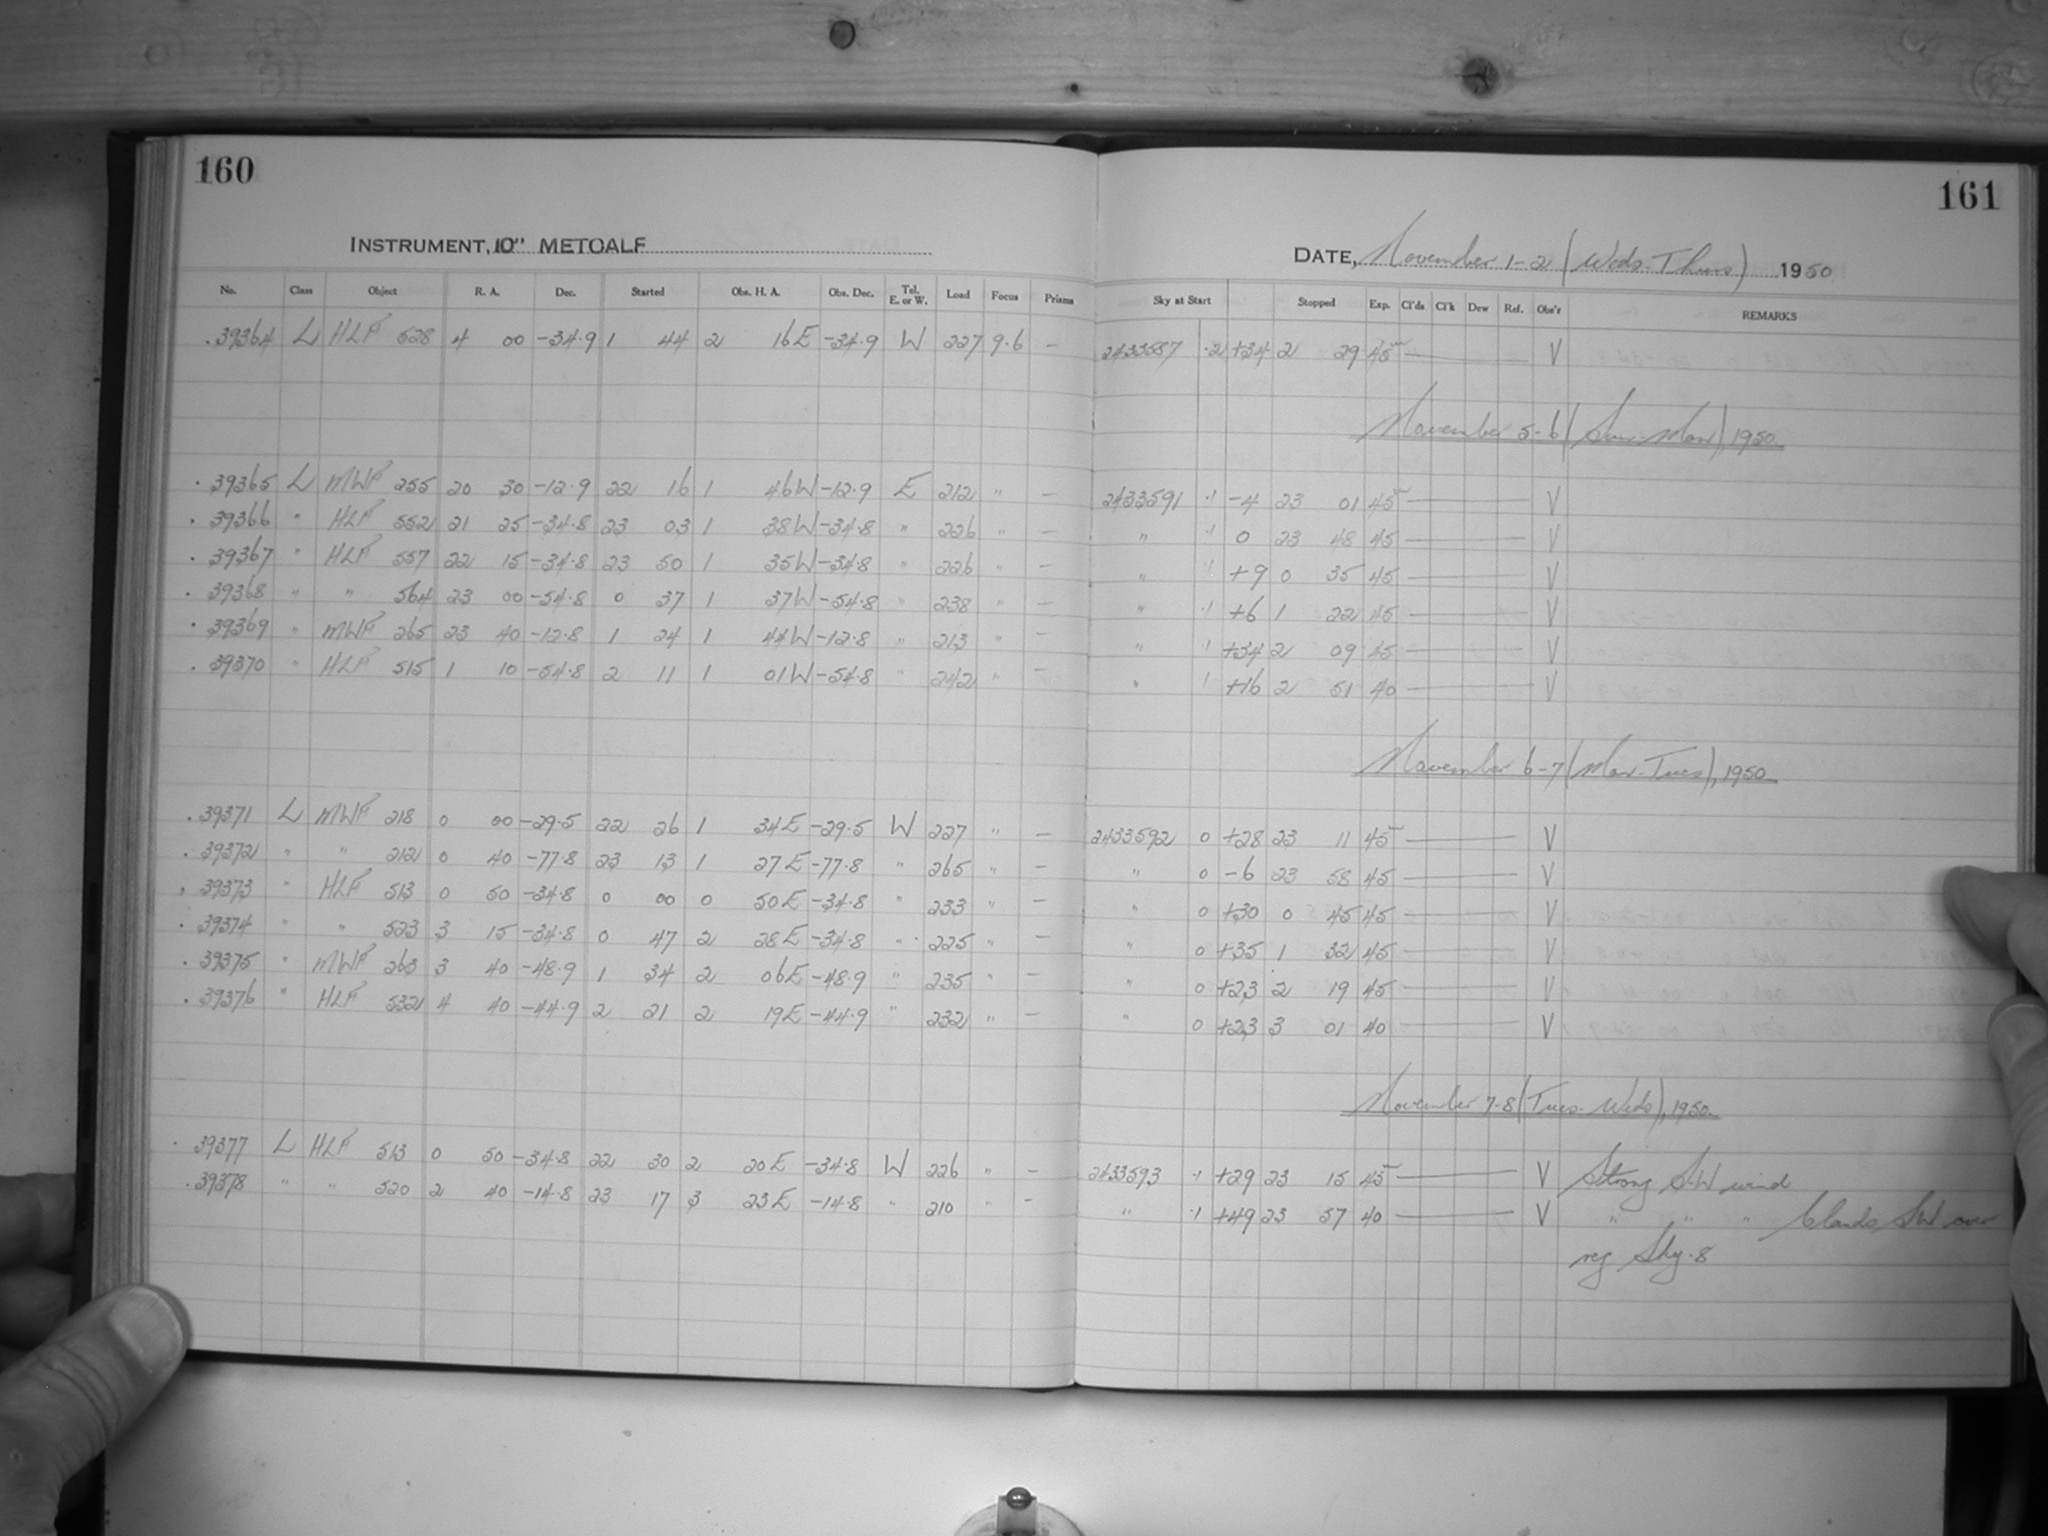 160
INSTRUMENT, 10" METCALF
No. Class Object R. A. Dec. Started Obs. H. A. Obs. Dec. Tel. E. or W. Load Focus Prisms
.39364 L HLF 528 4 00 -34.9 1 44 2 16E -34.9 W 227 9.6 -
.39365 L MWF 255 20 30 -12.9 22 16 1 46W -12.9 E 212 " -
.39366 " HLF 552 21 25 -34.8 23 03 1 38W -34.8 " 226 " -
.39367 " HLF 557 22 15 -34.8 23 50 1 35W -34.8 " 226 " -
.39368 " " 564 23 00 -54.8 0 37 1 37W -54.8 " 238 " -
.39369 " MWF 265 23 40 -12.8 1 24 1 44W -12.8 " 213 " -
.39370 " HLF 515 1 10 -54.8 2 11 1 01W -54.8 " 242 " -
.39371 L MWF 218 0 00 -29.5 22 26 1 34E -29.5 W 227 " -
.39372 " " 212 0 40 -77.8 23 13 1 27E -77.8 " 265 " -
.39373 " HLF 513 0 50 -34.8 0 00 0 50E -34.8 " 233 " -
.39374 " " 523 3 15 -34.8 0 47 2 28E -34.8 " 225 " -
.39375 " MWF 263 3 40 -48.9 1 34 2 06E -48.9 " 235 " -
.39376 " HLF 532 4 40 -44.9 2 21 2 19E -44.9 " 232 " -
.39377 L HLF 513 0 50 -34.8 22 30 2 20E -34.8 W 226 " -
.39378 " " 520 2 40 -14.8 23 17 3 23E -14.8 " 210 " -
161
DATE, November 1-2 (Weds-Thurs) 1950
Sky at Start Stopped Exp. Cl'ds Cl'k Dew Ref. Obs'r REMARKS
2433587 .2 +34 2 29 45 V
November 5-6 (Sun-Mon), 1950
2433591 .1 -4 23 01 45 V
" .1 0 23 48 45 V
" .1 +9 0 35 45 V
" .1 +6 1 22 45 V
" .1 +34 2 09 45 V
" .1 +16 2 51 40 V
November 6-7 (Mon-Tues), 1950
2433592 0 +28 23 11 45 V
" 0 -6 23 58 45 V
" 0 +30 0 45 45 V
" 0 +35 1 32 45 V
" 0 +23 2 19 45 V
" 0 +23 3 01 40 V
November 7-8 (Tues-Weds), 1950
2433593 .1 +29 23 15 45 V Strong S.W wind
" .1 +49 23 57 40 V " " " Clouds SW over
reg Sky .8